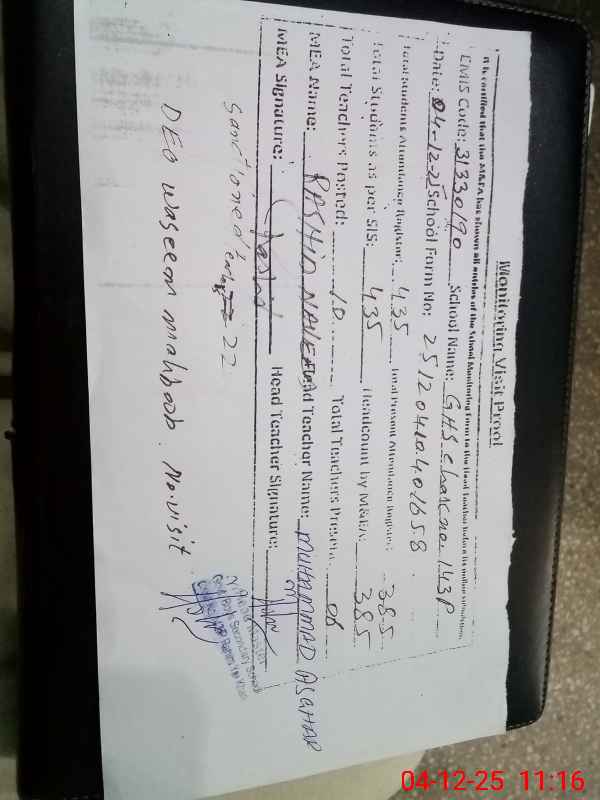 Monitoring Visit Proof
It is certified that the M&EA has shown all entries of the School Monitoring Form to the Head Teacher before its online submission.
EMIS Code: 31330190 School Name: GHS chak no. 143P
Date: 04-12-25 School Form No: 25120410401658
Total Students Attendance Register: 435 Total Present Attendance Register: 385
Total Students as per SIS: 435 Headcount by M&EA: 385
Total Teachers Posted: 10 Total Teachers Present: 08
MEA Name: RASHID NAVEED Head Teacher Name: MUHAMMAD ASGHAR
MEA Signature: Head Teacher Signature:
Sanctioned 22
DEO waseem mahboob. No. visit
Secondary School
04-12-25 11:16